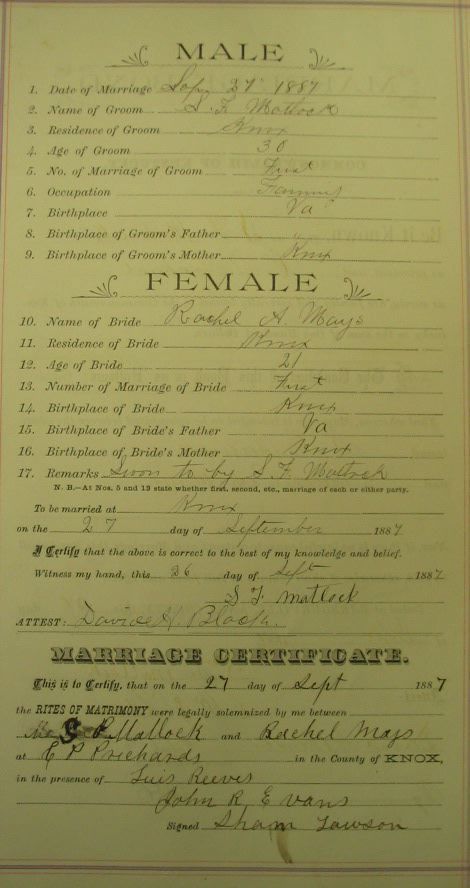 MALE
1. Date of Marriage Sep 27 1887
2. Name of Groom S. F. Matlock
3. Residence of Groom Knox
4. Age of Groom 30
5. No. of Marriage of Groom First
6. Occupation Farming
7. Birthplace Va
8. Birthplace of Groom's Father "
9. Birthplace of Groom's Mother Knox
FEMALE
10. Name of Bride Rachel A. Mays
11. Residence of Bride Knox
12. Age of Bride 21
13. Number of Marriage of Bride First
14. Birthplace of Bride Knox
15. Birthplace of Bride's Father Va
16. Birthplace of Bride's Mother Knox
17. Remarks Swon to by S. F. Matlock
N. B.—At Nos. 5 and 13 state whether first, second, etc., marriage of each or either party.
To be married at Knox
on the 27 day of September 1887
I Certify that the above is correct to the best of my knowledge and belief.
Witness my hand, this 26 day of Sept 1887
S F Matlock
ATTEST: David H. Black.
MARRIAGE CERTIFICATE.
This is to Certify, that on the 27 day of Sept 1887
the RITES OF MATRIMONY were legally solemnized by me between
Matlock and Rachel Mays
at E P Prichards in the County of KNOX,
in the presence of Luis Reeves
John R. Evans
Signed Sham Lawson